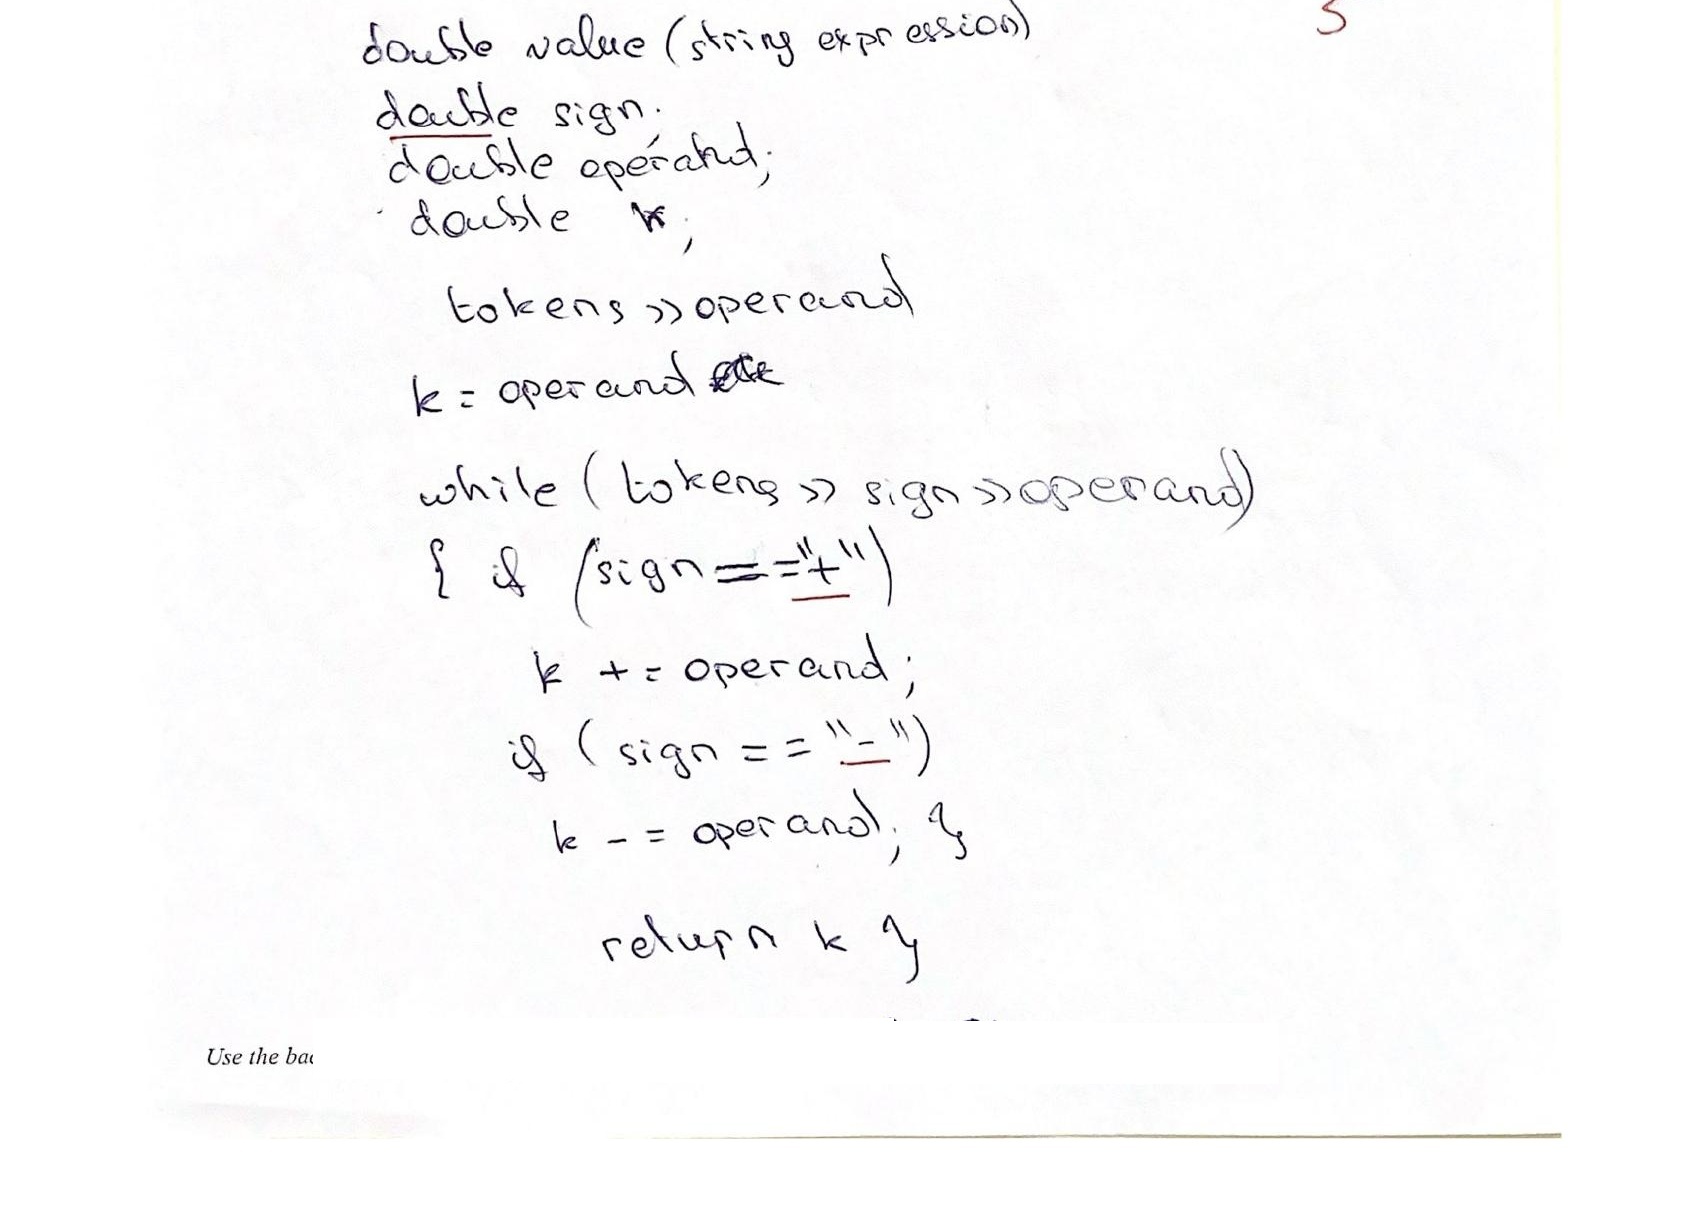 double value (string expression)
5
double sign;
double operand;
double k;
tokens >> operand
k = operand
while (tokens >> sign >> operand)
{ if (sign == "+")
k += operand;
if (sign == "-")
k -= operand; }
return k }
Use the bac